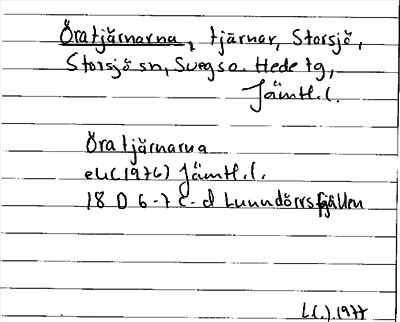 Öratjärnarna, tjärnar, Storsjö,
Storsjö sn, Svegs o. Hede tg,
Jämtl.l.
Öratjärnarna
ek (1976) Jämtl.l.
18 D 6-7 c-d Lunndörrsfjällen
1977